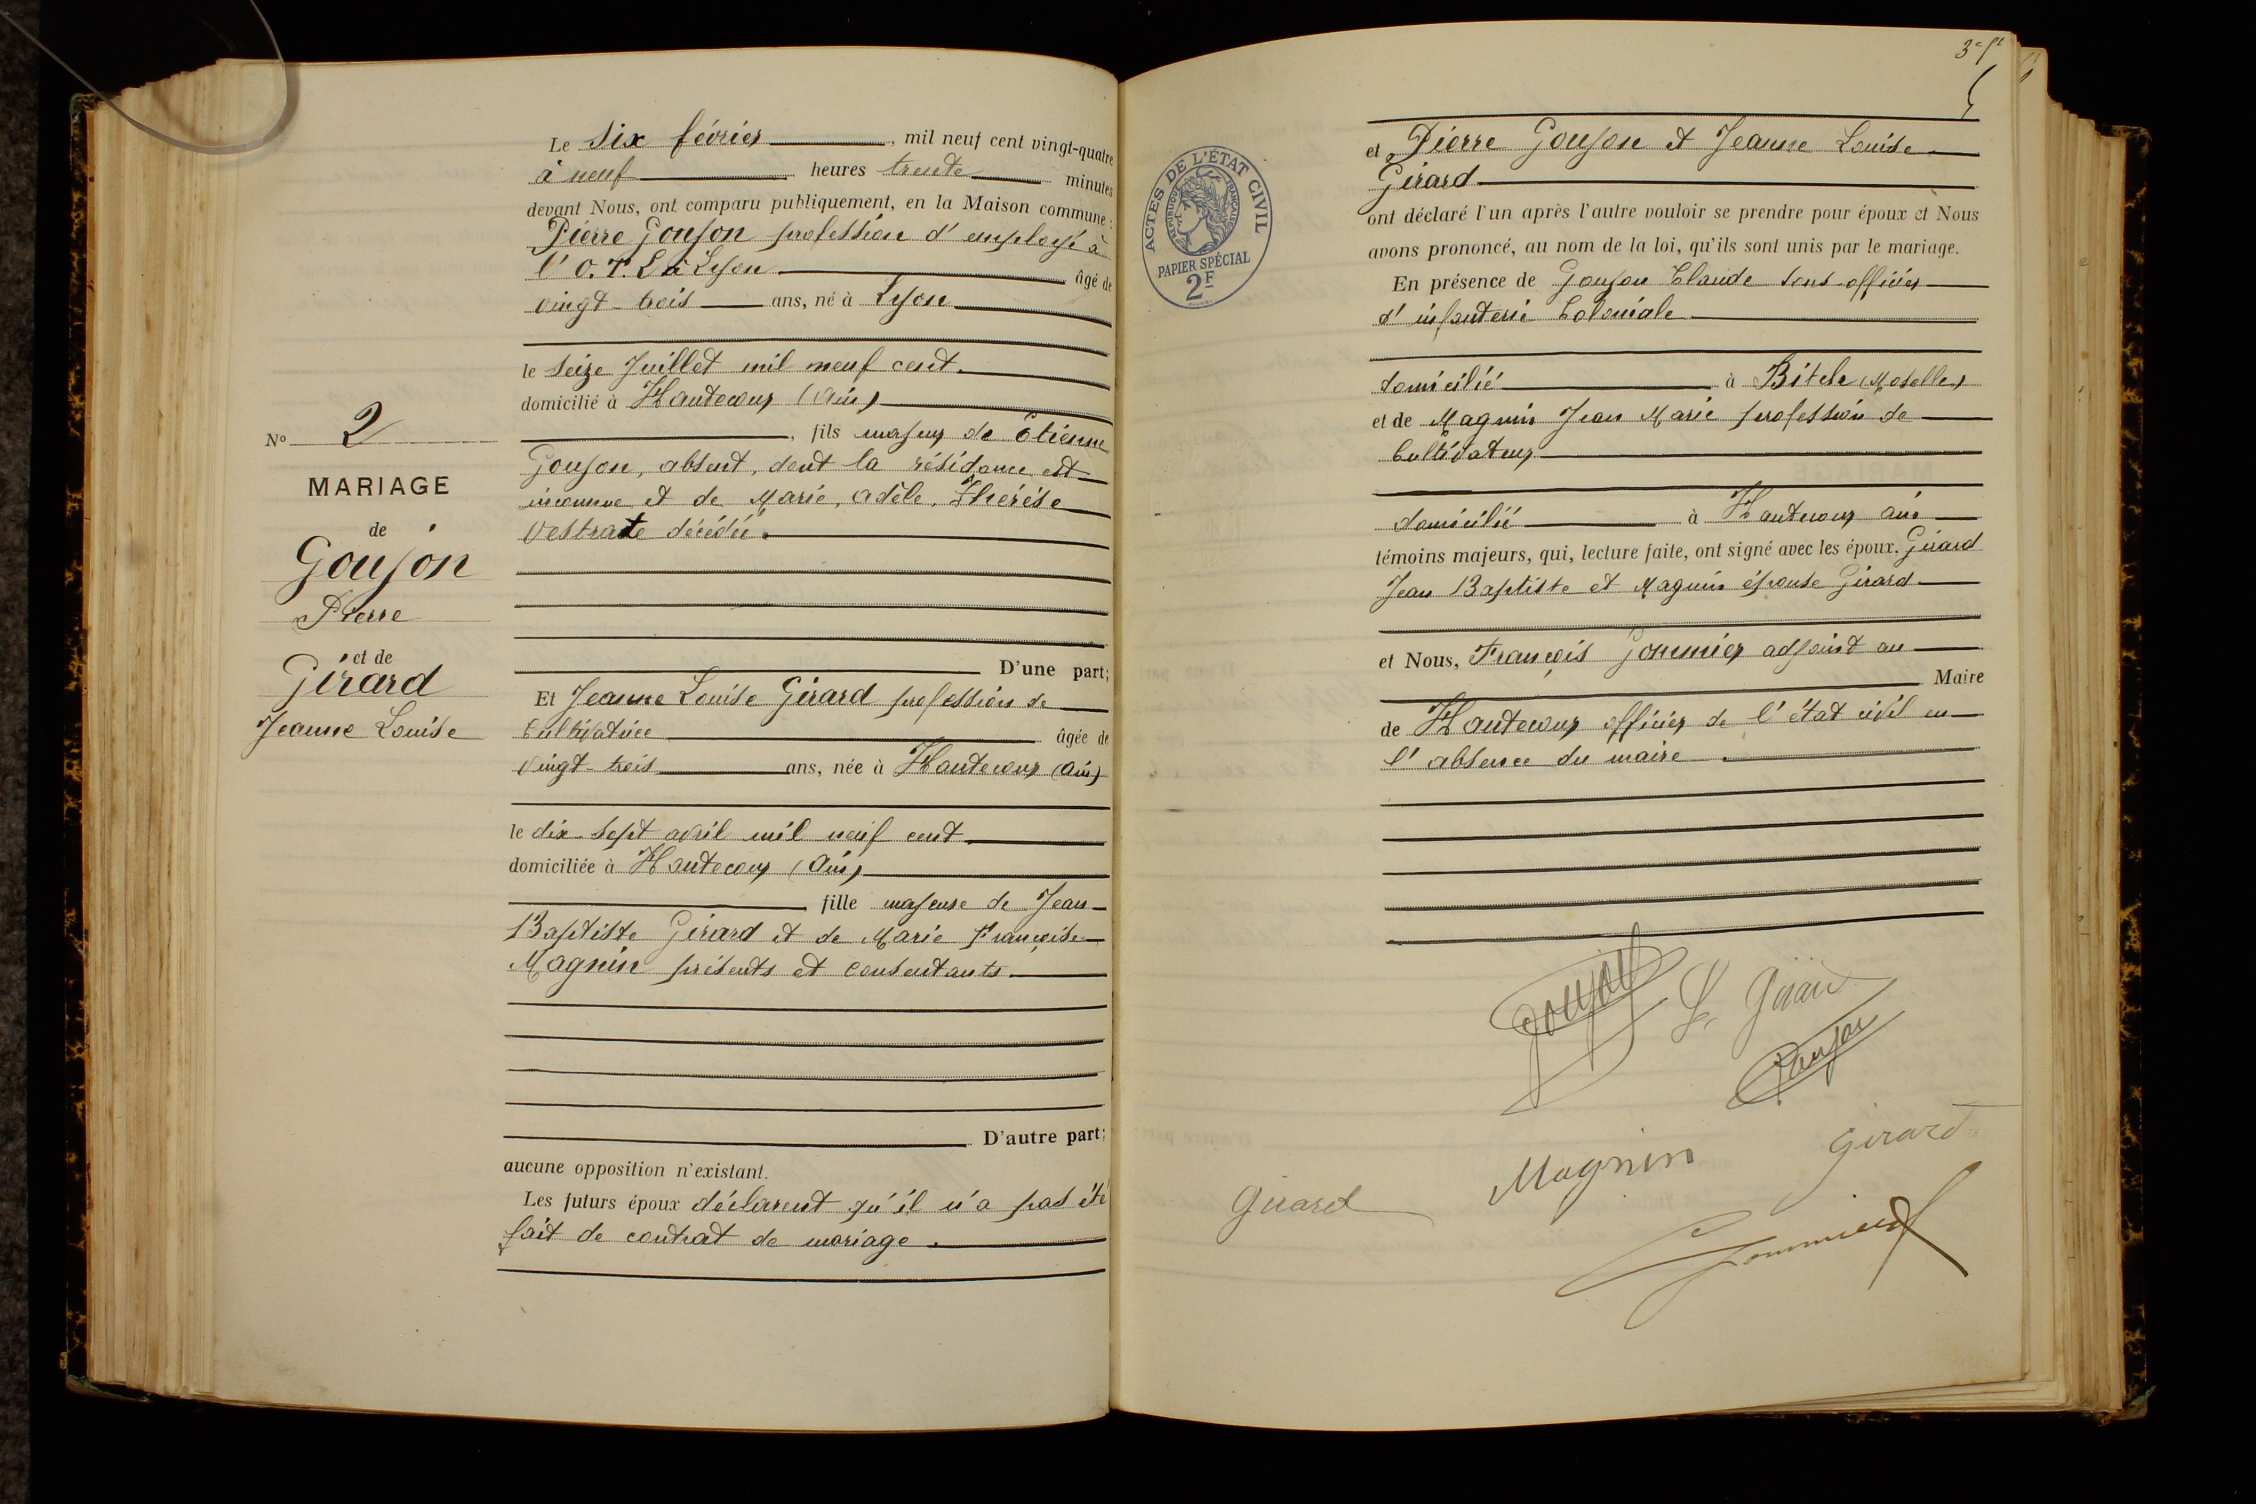 Le six février, mil neuf cent vingt-quatre
à neuf heures trente minutes
devant Nous, ont comparu publiquement, en la Maison commune :
Pierre Goujon profession d'employé à
l'O.T.L à Lyon âgé de
vingt-trois ans, né à Lyon
le seize Juillet mil neuf cent.
domicilié à Hautecour (Ain)
, fils majeur de Etienne
Goujon, absent, dont la résidence est
inconnue et de Marie, Adèle, Thérèse
Vestrate décédée.
D'une part;
Et Jeanne Louise Girard profession de
Cultivatrice âgée de
vingt-trois ans, née à Hautecour (Ain)
le dix-sept avril mil neuf cent.
domiciliée à Hautecour (Ain)
fille majeure de Jean
Baptiste Girard et de Marie Françoise
Magnin présents et consentants.
D'autre part;
aucune opposition n'existant.
Les futurs époux déclarent qu'il n'a pas été
fait de contrat de mariage.
No 2
MARIAGE
de
Goujon
Pierre
et de
Girard
Jeanne Louise
ACTES DE L'ÉTAT CIVIL
RÉPUBLIQUE FRANÇAISE
PAPIER SPÉCIAL
2F
et Pierre Goujon et Jeanne Louise
Girard
ont déclaré l'un après l'autre vouloir se prendre pour époux et Nous
avons prononcé, au nom de la loi, qu'ils sont unis par le mariage.
En présence de Goujon Claude sous-officier
d'infanterie Coloniale
domicilié à Bitche (Moselle)
et de Magnin Jean Marie profession de
Cultivateur
domicilié à Hautecour Ain
témoins majeurs, qui, lecture faite, ont signé avec les époux. Girard
Jean Baptiste et Magnin épouse Girard
et Nous, François Gommier adjoint au
Maire
de Hautecour officier de l'état civil en
l'absence du maire.
Goujon
L. Girard
Goujon
Magnin
Girard
Girard
Gommier